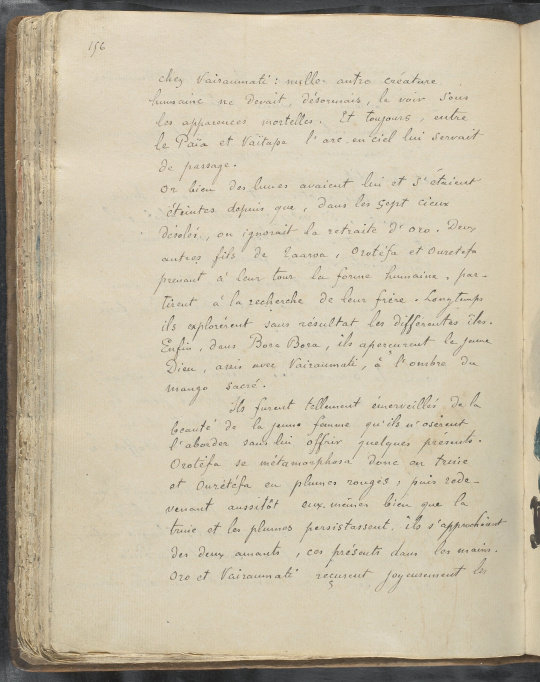 156
chez Vaïraumati : nulle autre créature
humaine ne devait, désormais, le voir sous
les apparences mortelles. Et toujours, entre
le Païa et Vaïtape l'arc en ciel lui servait
de passage.
Or bien des lunes avaient lui et s'étaient
éteintes depuis que, dans les sept cieux
désolés, on ignorait la retraite d'Oro. Deux
autres fils de Taaroa, Orotéfa et Ourétéfa
prenant à leur tour la forme humaine, par-
tirent à la recherche de leur frère. Longtemps
ils explorèrent sans résultat les différentes îles.
Enfin, dans Bora Bora, ils aperçurent le jeune
Dieu, assis avec Vaïraumati, à l'ombre du
mango sacré.
Ils furent tellement émerveillés de la
beauté de la jeune femme qu'ils n'osèrent
l'aborder sans lui offrir quelques présents.
Orotéfa se métamorphosa donc en truie
et Ourétéfa en plumes rouges ; puis rede-
venant aussitôt eux-mêmes bien que la
truie et les plumes persistassent, ils s'approchèrent
des deux amants, ces présents dans les mains.
Oro et Vaïraumati reçurent joyeusement les